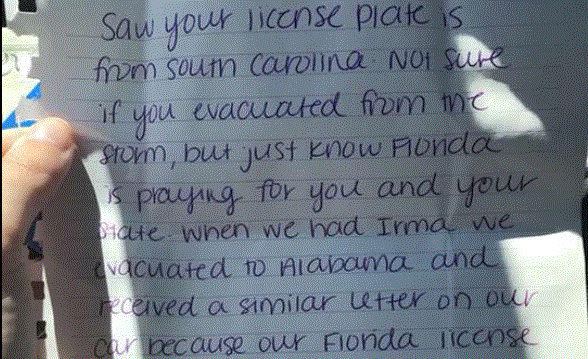 Saw your license plate is
from South Carolina. Not sure
if you evacuated from the
storm, but just know Florida
is praying for you and your
state. When we had Irma we
evacuated to Alabama and
received a similar letter on our
car because our Florida license